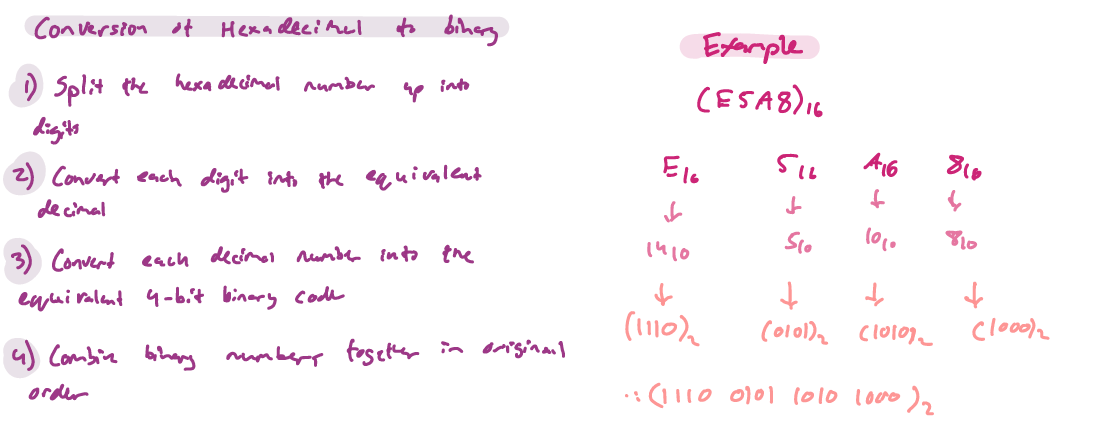 Conversion of Hexadecimal to binary
1) Split the hexadecimal number up into
digits
2) Convert each digit into the equivalent
decimal
3) Convert each decimal number into the
equivalent 4-bit binary code
4) Combine binary numbers together in original
order
Example
(E5A8)₁₆
E₁₆ 5₁₆ A₁₆ 8₁₆
↓ ↓ ↓ ↓
14₁₀ 5₁₀ 10₁₀ 8₁₀
↓ ↓ ↓ ↓
(1110)₂ (0101)₂ (1010)₂ (1000)₂
∴ (1110 0101 1010 1000)₂